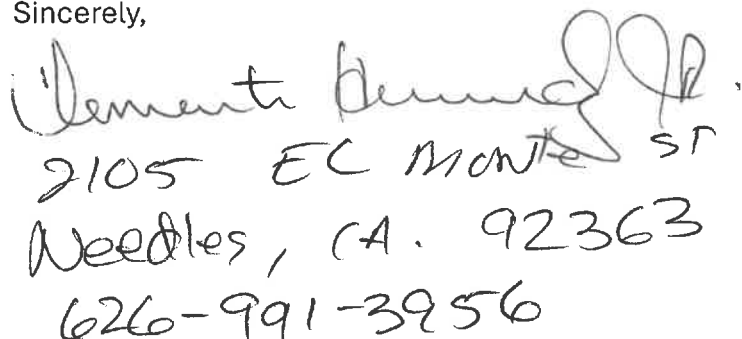 Sincerely,
Clemente Jr.
2105 El Monte St
Needles, CA. 92363
626-991-3956